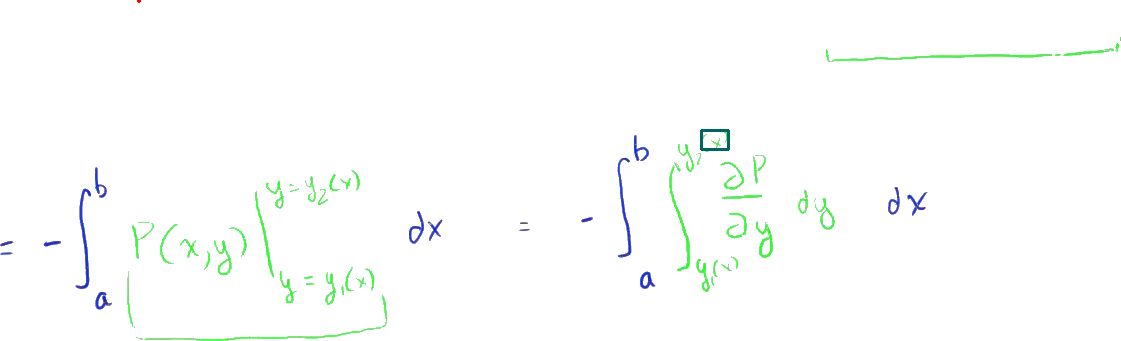 = - ∫_a^b P(x,y) |_{y = y₁(x)}^{y = y₂(x)} dx = - ∫_a^b ∫_{y₁(x)}^{y₂(x)} ∂P/∂y dy dx